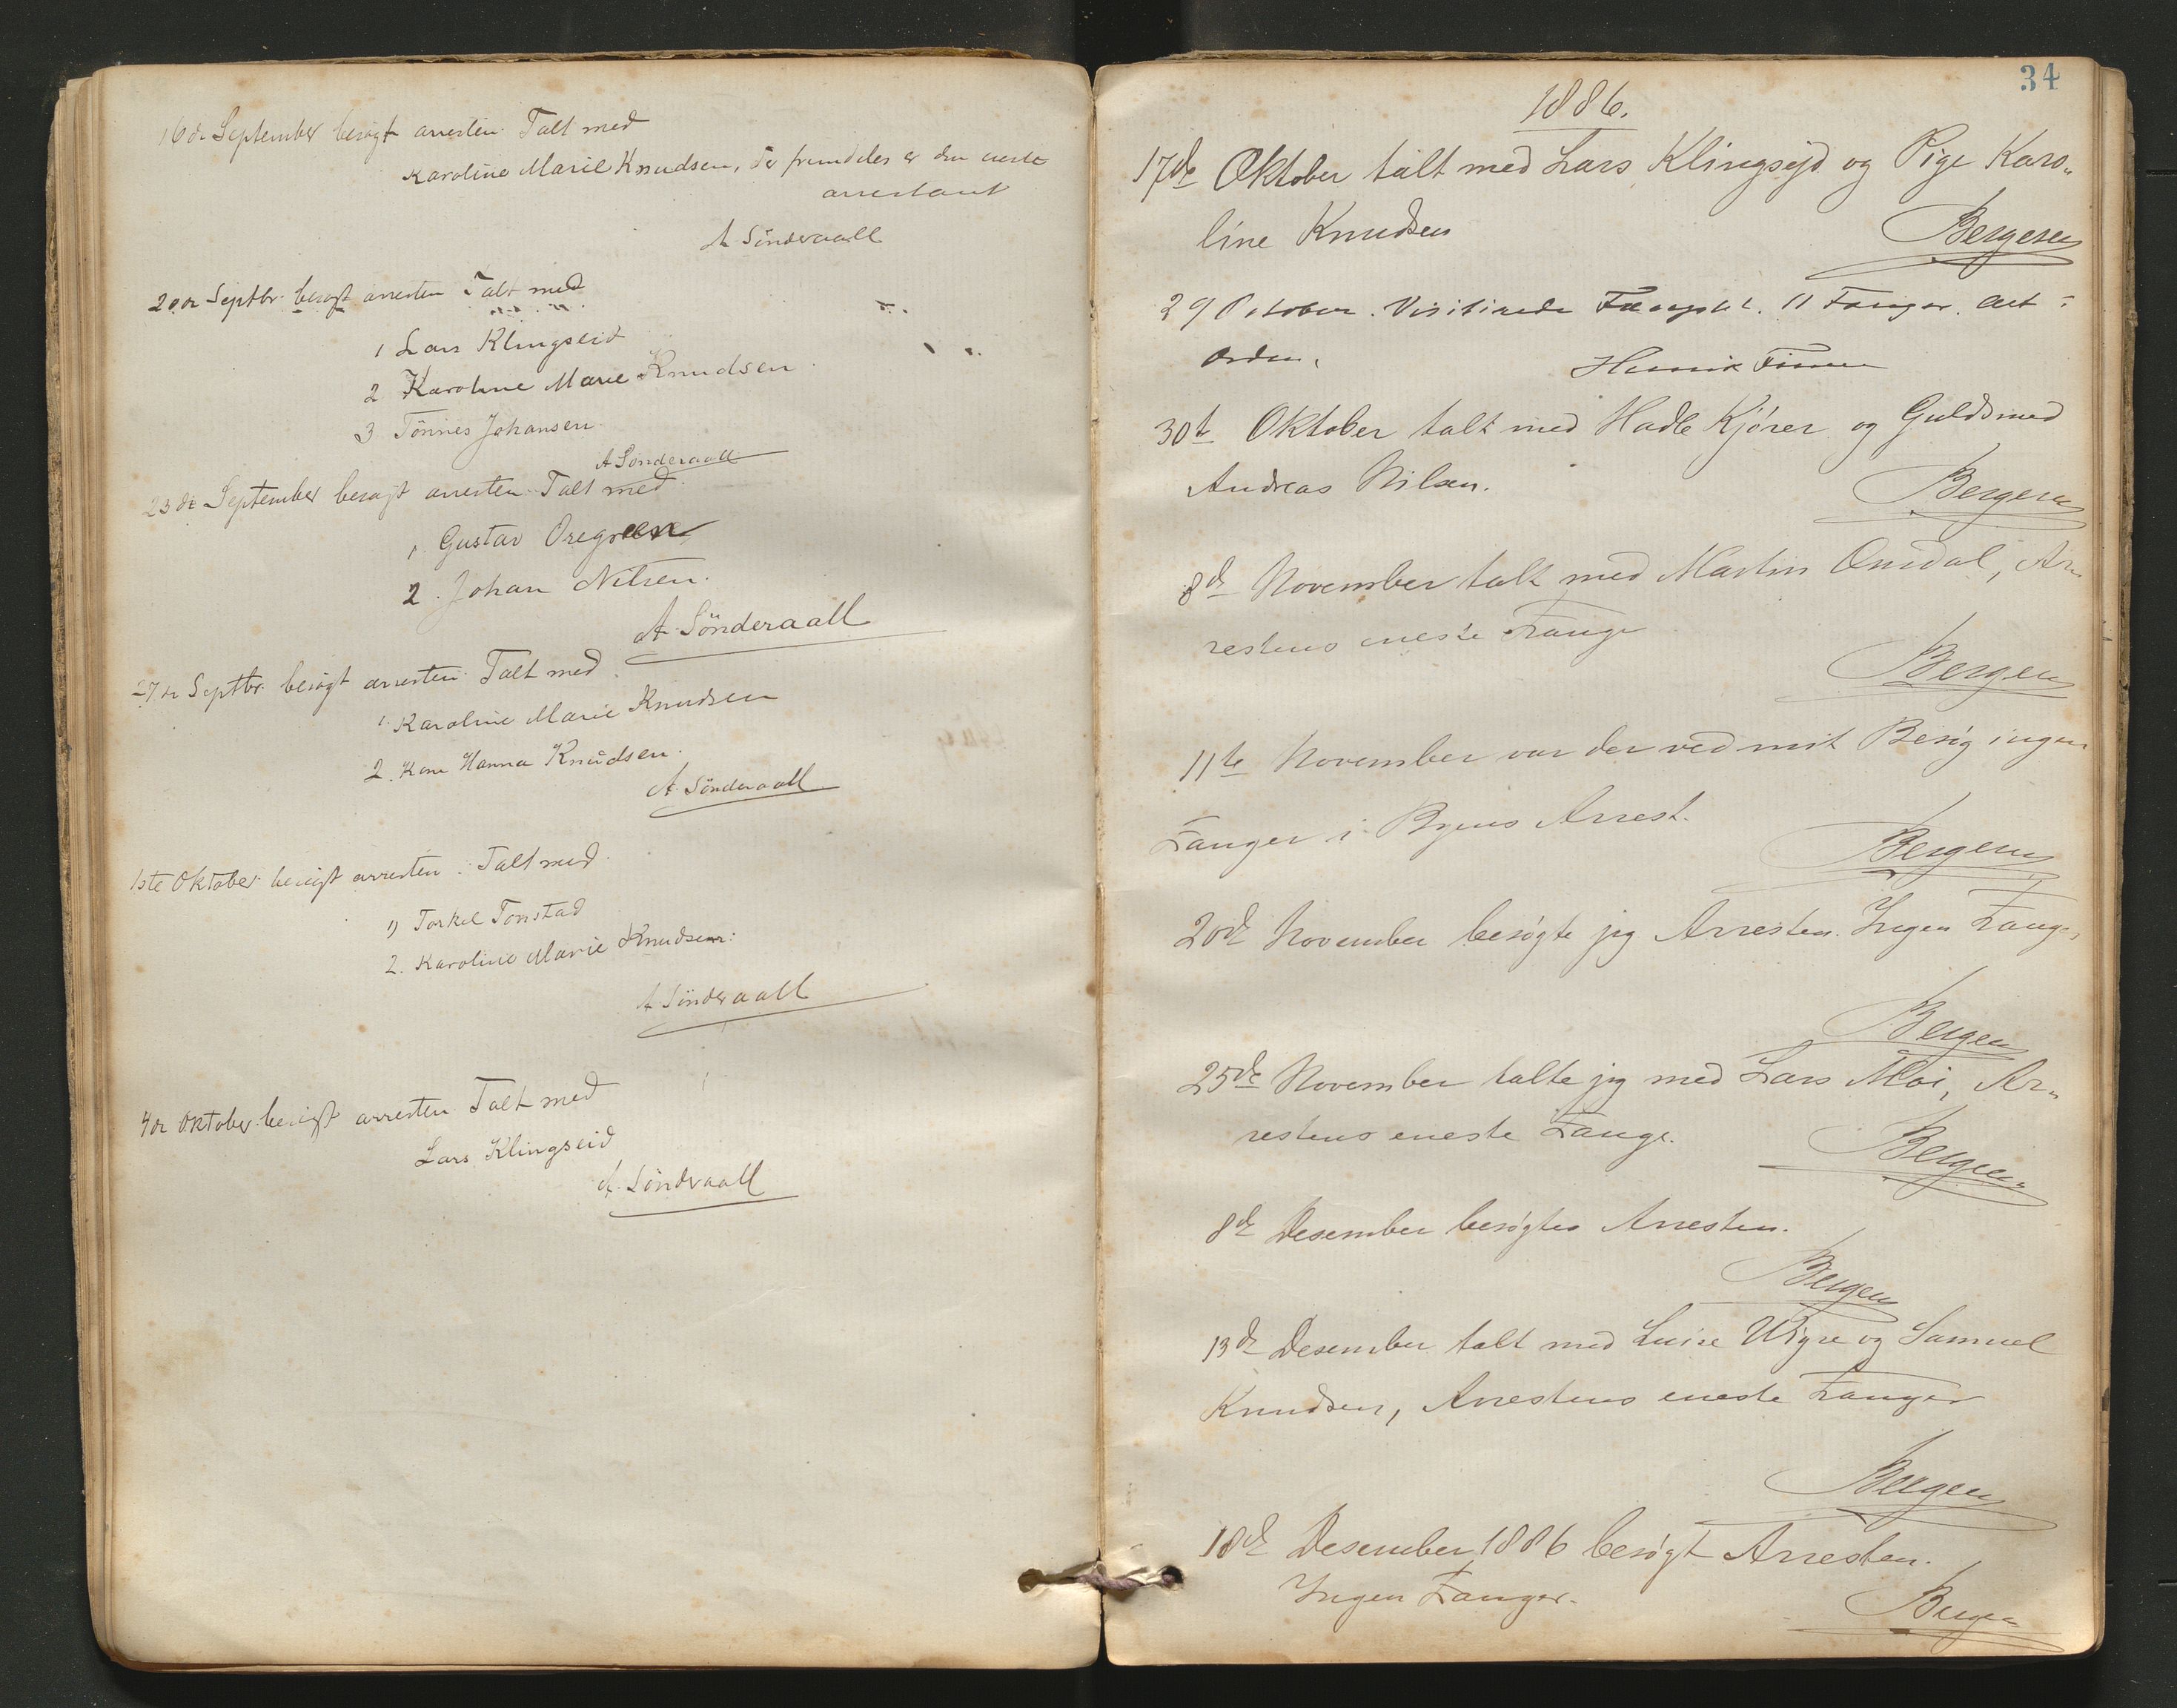 16de September besøgt arresten. Talt med
Karoline Marie Knudsen, der fremdeles er den eneste
arrestant
A Sönderaall
20de Septbr. besøgt arresten Talt med
1 Lars Klingseid
2 Karoline Marie Knudsen
3 Tönnes Johansen
A Sönderaall
23de September besøgt arresten. Talt med
1. Gustav Oregreen
2. Johan Nilsen.
A Sönderaall
27de Septbr. besøgt arresten. Talt med
1. Karoline Marie Knudsen
2. Kone Hanna Knudsen.
A. Sönderaall
1ste Oktober besøgt arresten. Talt med
1) Torkel Tonstad
2. Karoline Marie Knudsen.
A Sönderaall
4de Oktober besøgt arresten Talt med
Lars Klingseid
A. Sönderaall
34
1886.
17de Oktober talt med Lars Klingseid og Pige Karo„
line Knudsen
Bergesen
29 October. Visiterede Fængslet. 11 Fanger. Alt i
Orden.
Henrik
30te Oktober talt med Hadle Kjörer og Guldsmed
Andreas Nilsen.
Bergesen
8de November talt med Martin Omdal, Ar„
restens eneste Fange
Bergesen
11te November var der ved mit Besøg ingen
Fanger i Byens Arrest.
Bergesen
20de November besøgte jeg Arresten. Ingen Fanger
Bergesen
25de November talte jeg med Lars Moi, Ar„
restens eneste Fange.
Bergesen
8de Desember besøgtes Arresten.
Bergesen
13de Desember talt med Luise og Samuel
Knudsen, Arrestens eneste Fanger
Bergesen
18de Desember 1886 besøgt Arresten.
Ingen Fanger.
Bergesen